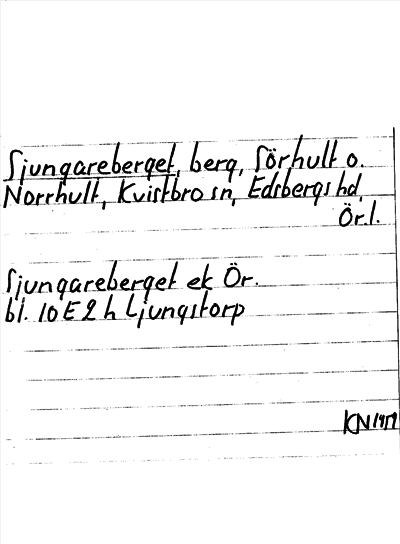 Sjungareberget, berg, Sörhult o.
Norrhult, Kvistbro sn, Edsbergs hd,
Ör.l.
Sjungareberget ek Ör.
bl. 10E2h Ljungstorp
KN